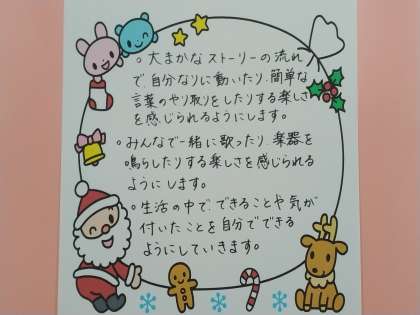 。大まかなストーリーの流れ
で自分なりに動いたり、簡単な
言葉のやり取りをしたりする楽しさ
を感じられるようにします。
。みんなで一緒に歌ったり、楽器を
鳴らしたりする楽しさを感じられる
ようにします。
。生活の中で、できることや気が
付いたことを自分でできる
ようにしていきます。